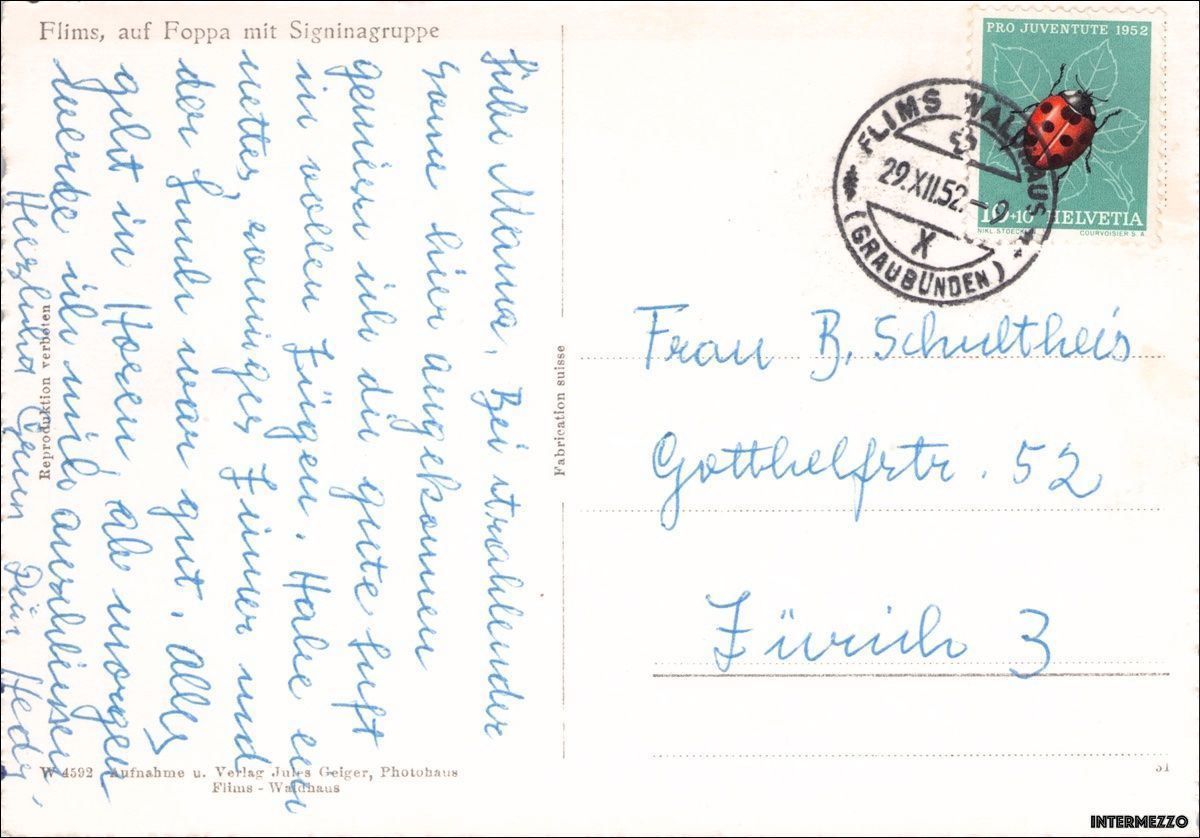 Flims, auf Foppa mit Signinagruppe
Liebe Mama, Bei strahlender
Sonne hier angekommen
geniesse ich die gute Luft
in vollen Zügen. Habe ein
nettes, sonniges Zimmer und
der Lunch war gut. Alles
geht in Hosen, ab morgen
werde ich mich anschliessen.
Herzliche Grüsse Dein Hedy,
Reproduktion verboten
W 4592 Aufnahme u. Verlag Jules Geiger, Photohaus
Flims - Waldhaus
Fabrication suisse
PRO JUVENTUTE 1952
10+10 HELVETIA
COURVOISIER S.A.
FLIMS WALDHAUS
29.XII.52.-9
X
(GRAUBÜNDEN)
Frau B. Schultheis
Gotthelfstr. 52
Zürich 3
51
INTERMEZZO